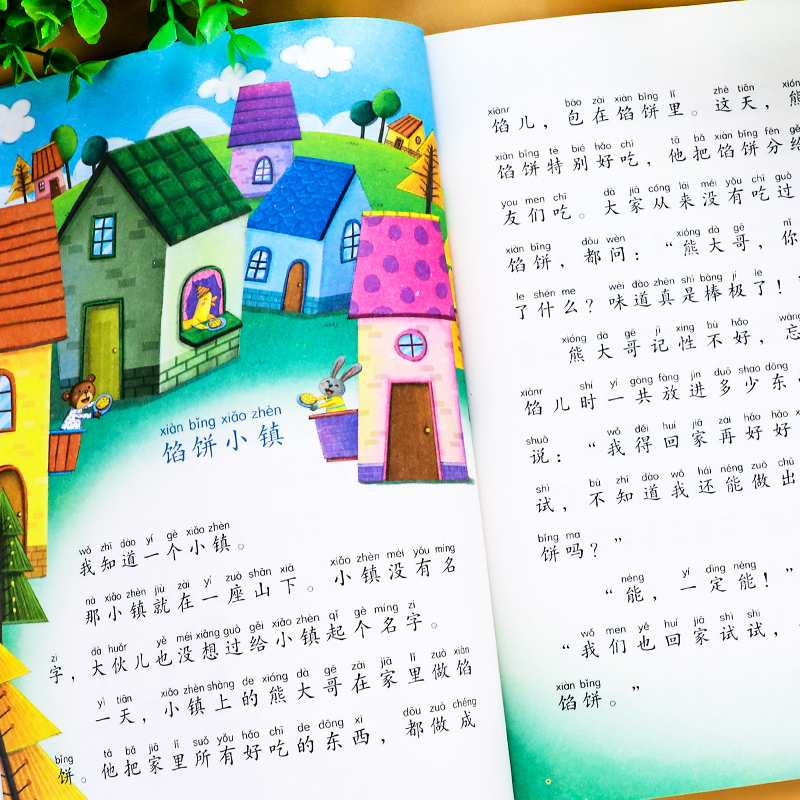 xiàn bǐng xiǎo zhèn
馅饼小镇
wǒ zhī dào yí gè xiǎo zhèn
我知道一个小镇。
nà xiǎo zhèn jiù zài yí zuò shān xià xiǎo zhèn méi yǒu míng
那小镇就在一座山下。小镇没有名
zi dà huǒr yě méi xiǎng guò gěi xiǎo zhèn qǐ gè míng zi
字，大伙儿也没想过给小镇起个名字。
yì tiān xiǎo zhèn shàng de xióng dà gē zài jiā lǐ zuò xiàn
一天，小镇上的熊大哥在家里做馅
bǐng tā bǎ jiā lǐ suǒ yǒu hǎo chī de dōng xi dōu zuò chéng
饼。他把家里所有好吃的东西，都做成
xiànr bāo zài xiàn bǐng lǐ zhè tiān xióng
馅儿，包在馅饼里。这天，熊
xiàn bǐng tè bié hǎo chī tā bǎ xiàn bǐng fēn gěi
馅饼特别好吃，他把馅饼分给
you men chī dà jiā cóng lái méi yǒu chī guò
友们吃。大家从来没有吃过
xiàn bǐng dōu wèn xióng dà gē nǐ
馅饼，都问：“熊大哥，你
le shén me wèi dào zhēn shì bàng jí le
了什么？味道真是棒极了！
xióng dà gē jì xing bù hǎo wàng
熊大哥记性不好，忘
xiànr shí yí gòng fàng jìn duō shao dōng
馅儿时一共放进多少东
shuō wǒ děi huí jiā zài hǎo hǎo
说：“我得回家再好好
shì bù zhī dào wǒ hái néng zuò chū
试，不知道我还能做出
bǐng ma
饼吗？”
néng yí dìng néng
“能，一定能！”
wǒ men yě huí jiā shì shi
“我们也回家试试，
xiàn bǐng
馅饼。”